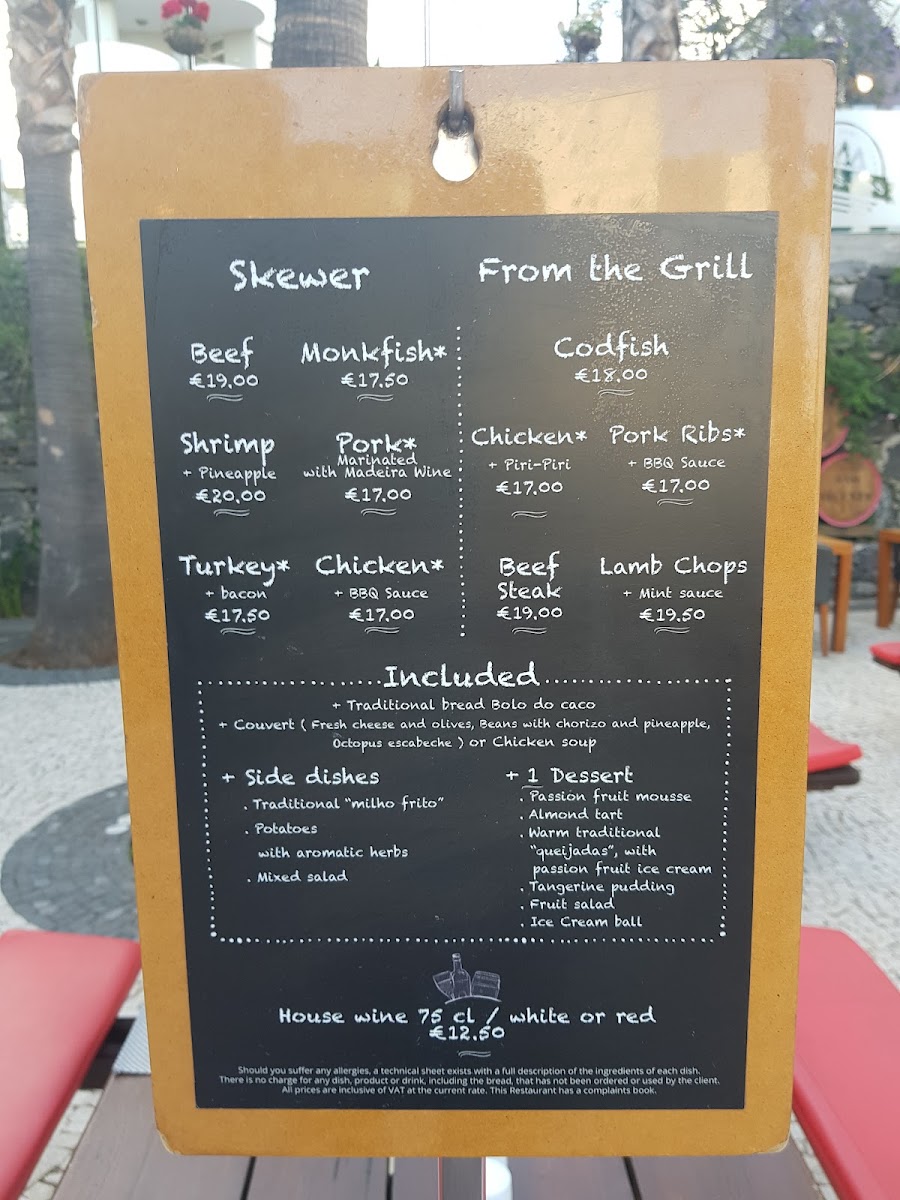 Skewer
Beef
€19,00
Monkfish*
€17,50
Shrimp
+ Pineapple
€20,00
Pork*
Marinated
with Madeira Wine
€17,00
Turkey*
+ bacon
€17,50
Chicken*
+ BBQ Sauce
€17,00
From the Grill
Codfish
€18,00
Chicken*
+ Piri-Piri
€17,00
Pork Ribs*
+ BBQ Sauce
€17,00
Beef
Steak
€19,00
Lamb Chops
+ Mint sauce
€19,50
Included
+ Traditional bread Bolo do caco
+ Couvert ( Fresh cheese and olives, Beans with chorizo and pineapple,
Octopus escabeche ) or Chicken soup
+ Side dishes
. Traditional "milho frito"
. Potatoes
with aromatic herbs
. Mixed salad
+ 1 Dessert
. Passion fruit mousse
. Almond tart
. Warm traditional
"queijadas", with
passion fruit ice cream
. Tangerine pudding
. Fruit salad
. Ice Cream ball
House wine 75 cl / white or red
€12,50
Should you suffer any allergies, a technical sheet exists with a full description of the ingredients of each dish.
There is no charge for any dish, product or drink, including the bread, that has not been ordered or used by the client.
All prices are inclusive of VAT at the current rate. This Restaurant has a complaints book.